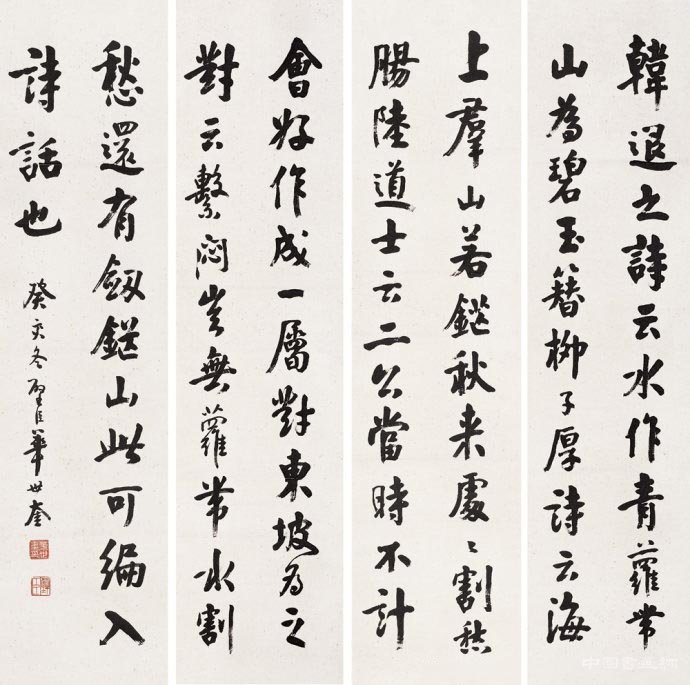 韓退之詩云水作青蘿帶
山為碧玉簪柳子厚詩云海
上羣山若鋩秋来處〻割愁
腸陸道士云二公當時不計
會好作成一屬對東坡為之
對云繫悶豈無蘿帶水割
愁還有劔鋩山此可編入
詩話也
癸亥冬璧臣華世奎